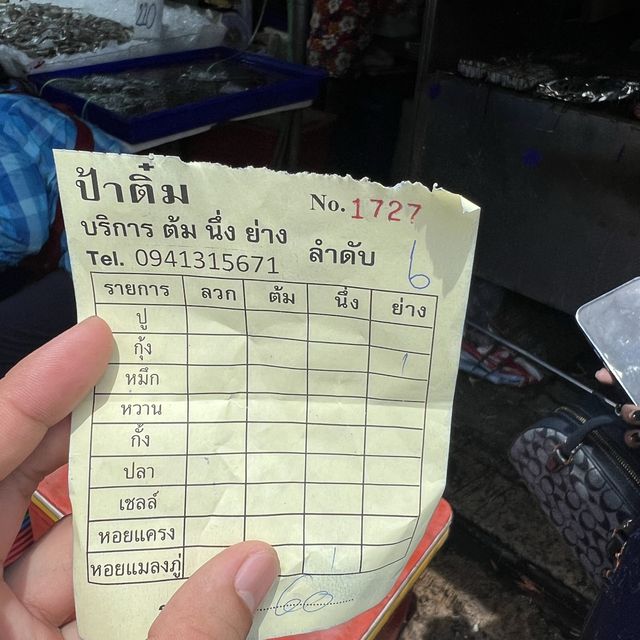 220
ป้าติ๋ม No. 1727
บริการ ต้ม นึ่ง ย่าง ลำดับ 6
Tel. 0941315671
รายการ ลวก ต้ม นึ่ง ย่าง
ปู
กุ้ง 1
หมึก
หวาน
กั้ง
ปลา
เชลล์
หอยแครง
หอยแมลงภู่ 1
60